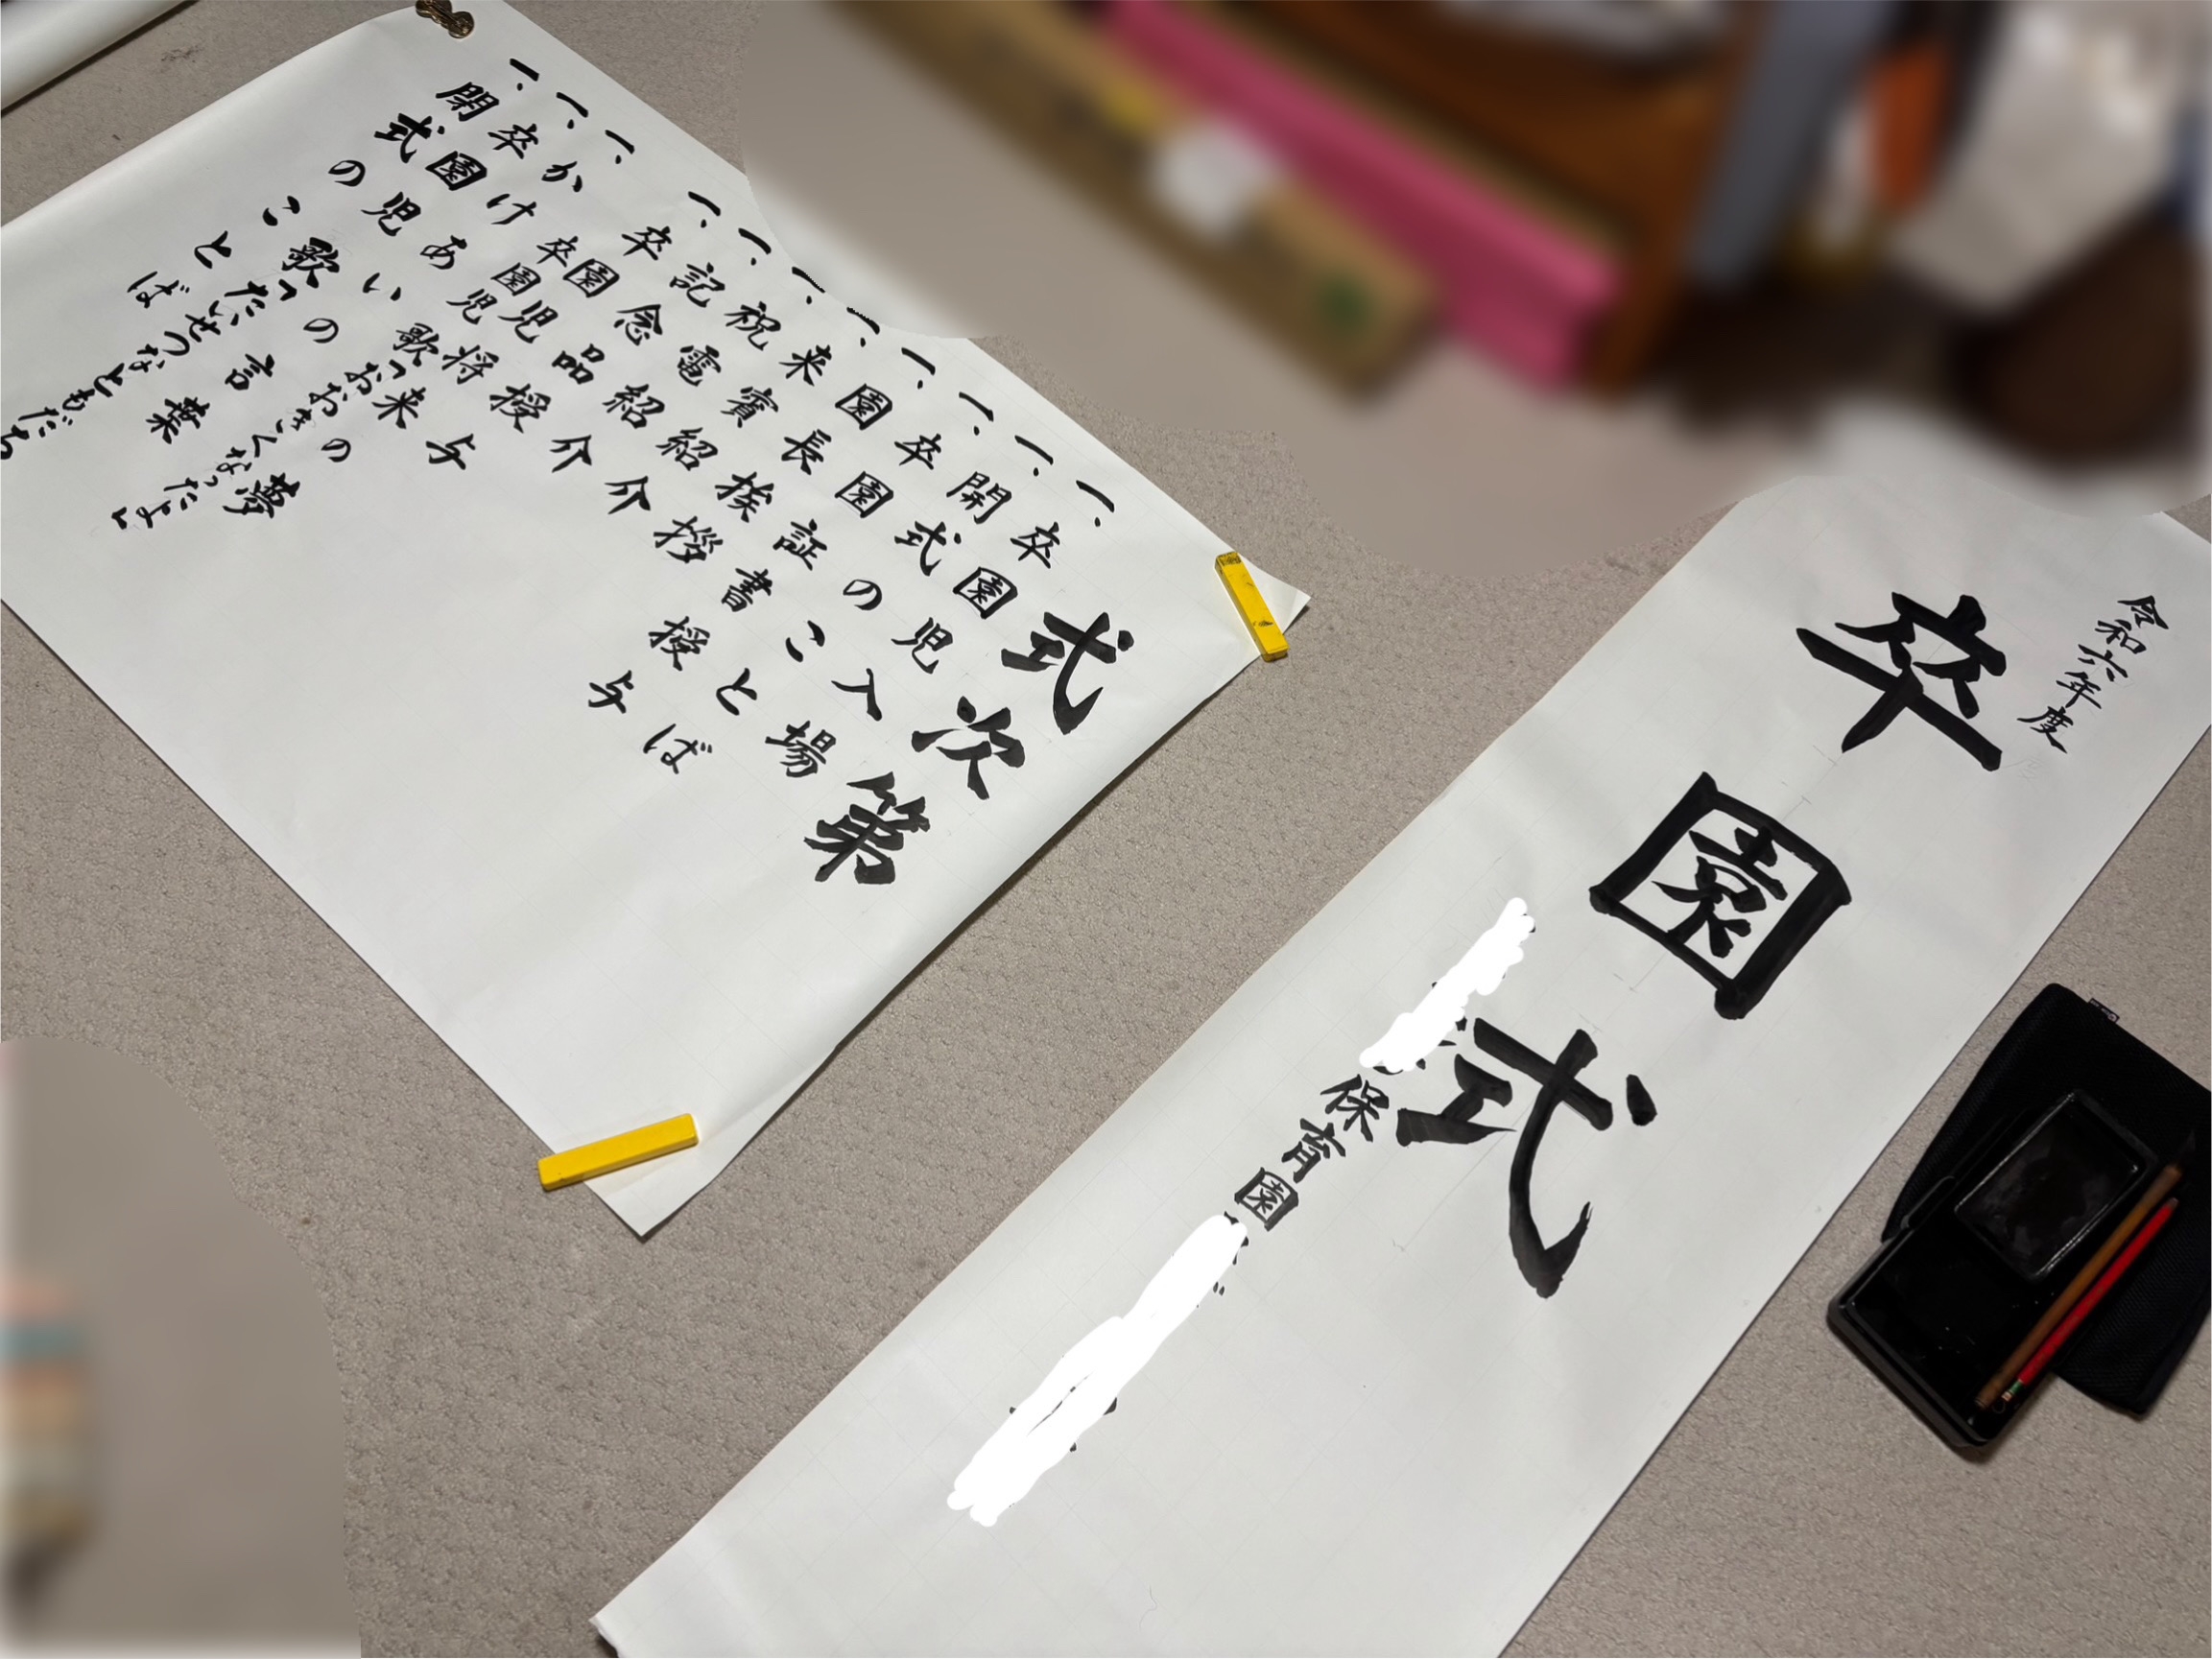 令和六年度
卒園式
保育園
式次第
一、卒園児入場
一、開式のことば
一、卒園証書授与
一、園長挨拶
一、来賓紹介
一、祝電紹介
一、記念品授与
一、卒園児将来の夢
卒園児歌「おおきくなったよ」
一、かけあいの言葉
一、卒園児 歌「たいせつなともだち
一、閉式のことば